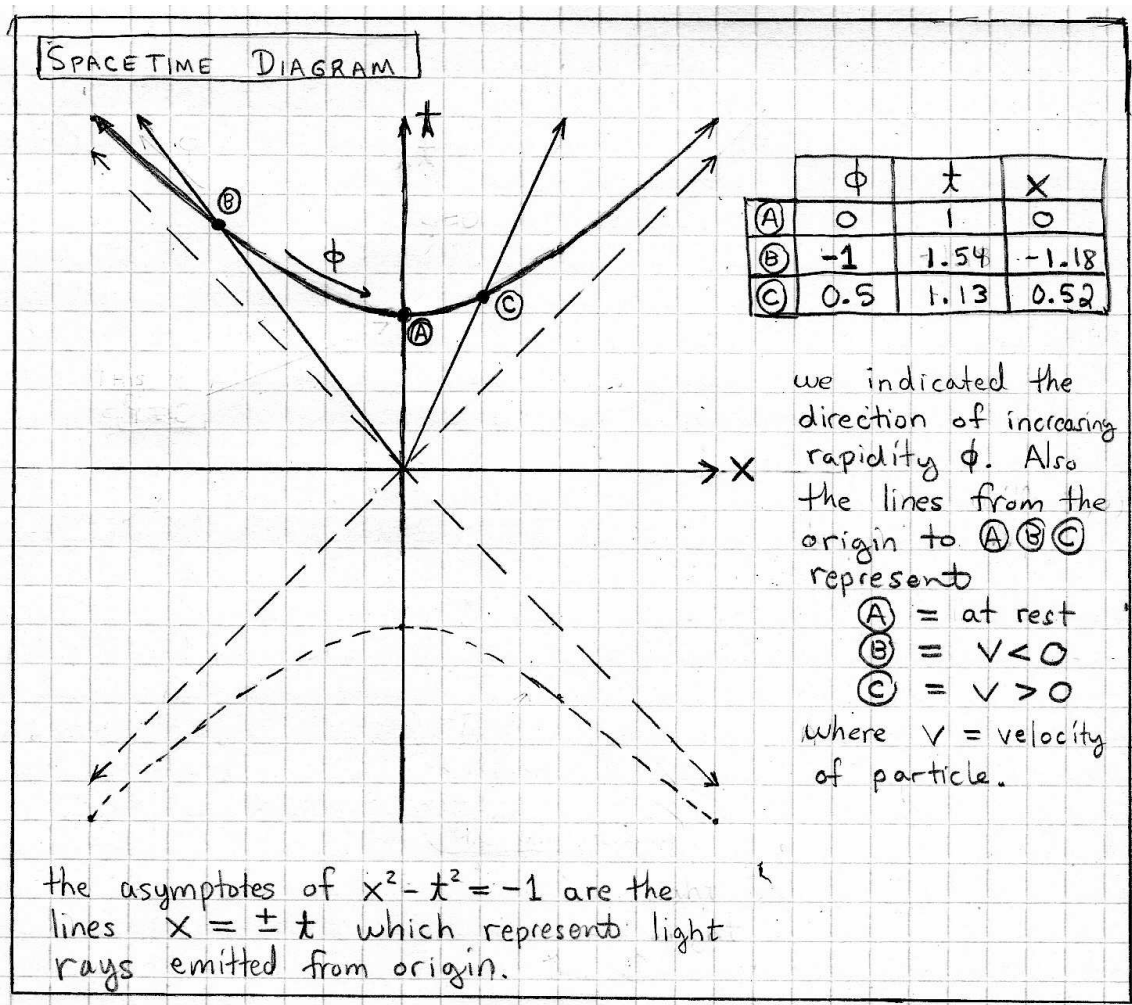 SPACETIME DIAGRAM
t
B
ϕ
A
C
x
ϕ t x
A 0 1 0
B -1 1.54 -1.18
C 0.5 1.13 0.52
we indicated the
direction of increasing
rapidity ϕ. Also
the lines from the
origin to A B C
represent
A = at rest
B = V < 0
C = V > 0
where V = velocity
of particle.
the asymptotes of x² - t² = -1 are the
lines x = ± t which represent light
rays emitted from origin.